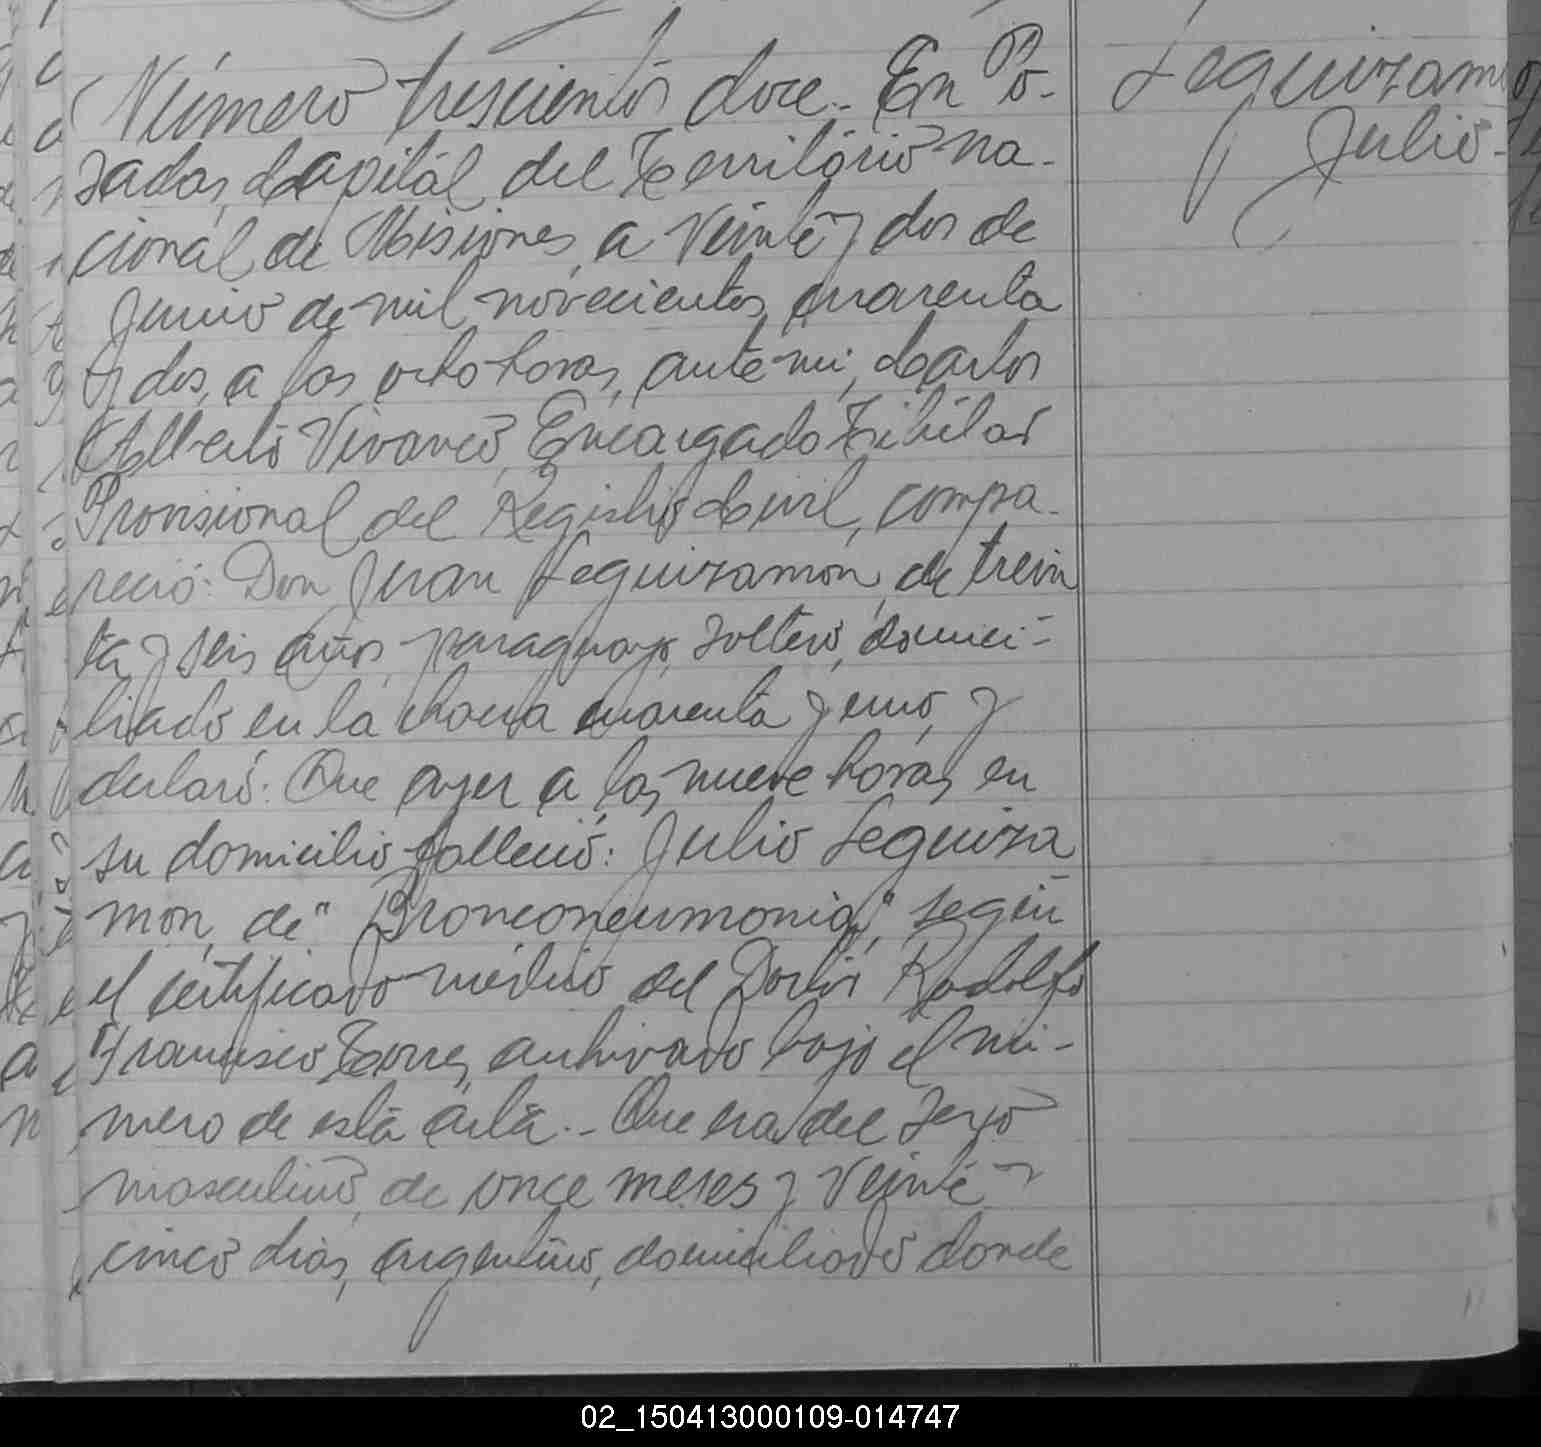 Número trescientos doce.- En Po-
sadas, Capital del Território na-
cional de Misiones, a veinte y dos de
Junio de mil novecientos cuarenta
y dos, a las ocho horas, ante mi, Carlos
Alberto Vivanco, Encargado Titular
Provisional del Registro Civil, compa-
reció: Don Juan Leguizamon, de trein
ta y seis años, paraguayo, soltero, domici-
liado en la chacra cuarenta y uno, y
declaró: Que ayer a las nueve horas, en
su domicilio falleció: Julio Leguiza
mon, de "Bronconeumonia", según
el certificado médico del Doctor Rodolfo
Francisco Torres, archivado bajo el nú-
mero de esta acta.- Que era del sexo
masculino, de once meses y veinte y
cinco dias, argentino, domiciliado donde
Leguizamon
Julio.-
02_150413000109-014747